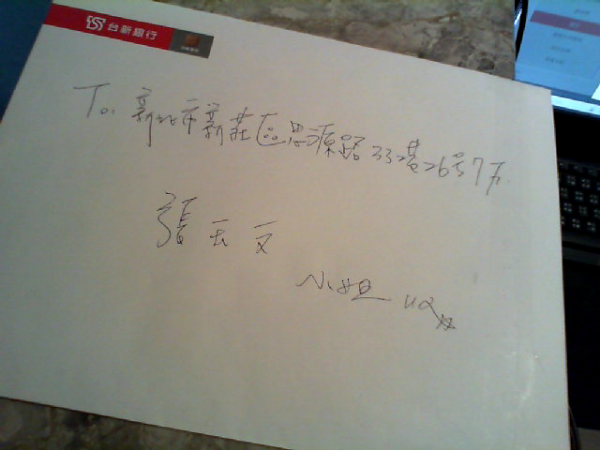 台新銀行
To. 新北市新莊區思源路33巷26号7F
張天文
小姐 收